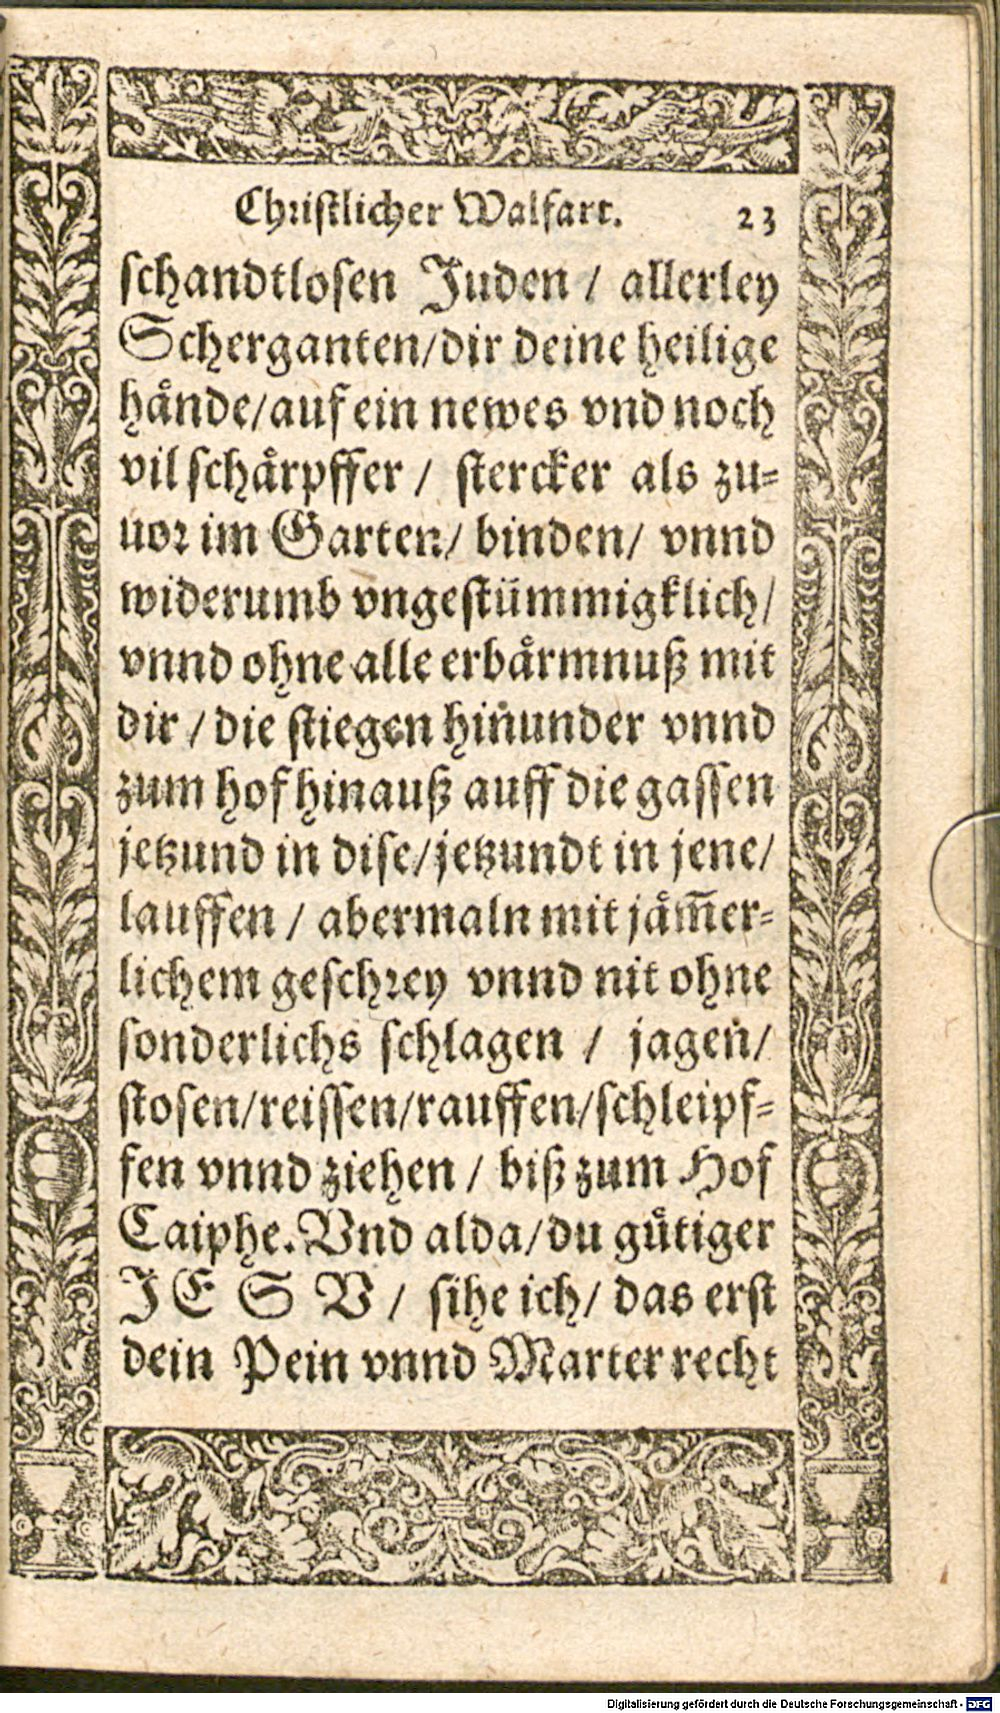 Christlicher Walfart. 23
schandtlosen Juden / allerley
Scherganten/dir deine heilige
hånde/auf ein newes vnd noch
vil schårpffer / stercker als zu-
uor im Garten/ binden/ vnnd
widerumb vngestümmigklich/
vnnd ohne alle erbårmnuß mit
dir / die stiegen hinunder vnnd
zum hof hinauß auff die gassen
jetzund in dise/jetzundt in jene/
lauffen / abermaln mit jåm̃er-
lichem geschrey vnnd nit ohne
sonderlichs schlagen / jagen/
stosen/reissen/rauffen/schleipf-
fen vnnd ziehen / biß zum Hof
Caiphe. Vnd alda/du gůtiger
JESV / sihe ich/ das erst
dein Pein vnnd Marter recht
Digitalisierung gefördert durch die Deutsche Forschungsgemeinschaft - DFG